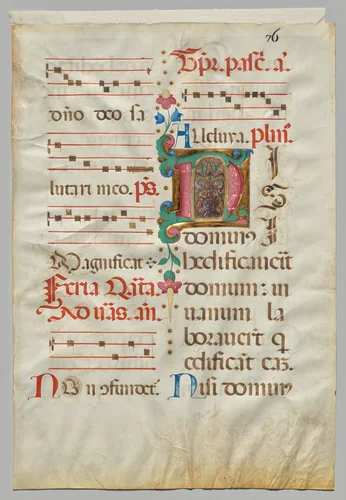 76
d​no deo sa
lutari meo. p̄s.
Magnificat
Feria Q̄i̅ta
Ad v̄as. an̄.
N on ↄfundet᷑.
Tp̄r. pasc̄. a̅.
Alleluya. plm̄.
N isi
dominus
hedificaverit
domum: in
uanum la
boraverūt q̄
edificāt eā.
Nisi dominus